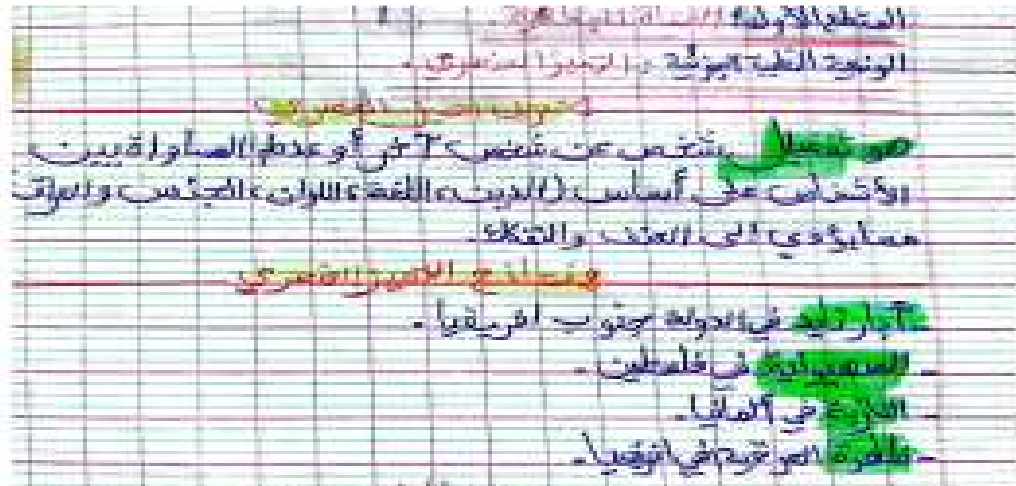 المقطع الأول:
الوضعية التعلمية الجزئية: التمييز العنصري.
تعريف التمييز العنصري
هو تفضيل شخص عن شخص آخر أو عدم المساواة بين
الأشخاص على أساس (الدين، اللغة، اللون، الجنس والعرق
مما يؤدي إلى العنف والتفكك.
نماذج التمييز العنصري
- آبارتايد في الدولة جنوب افريقيا.
- الصهيونية في فلسطين.
- النازية في ألمانيا.
- في